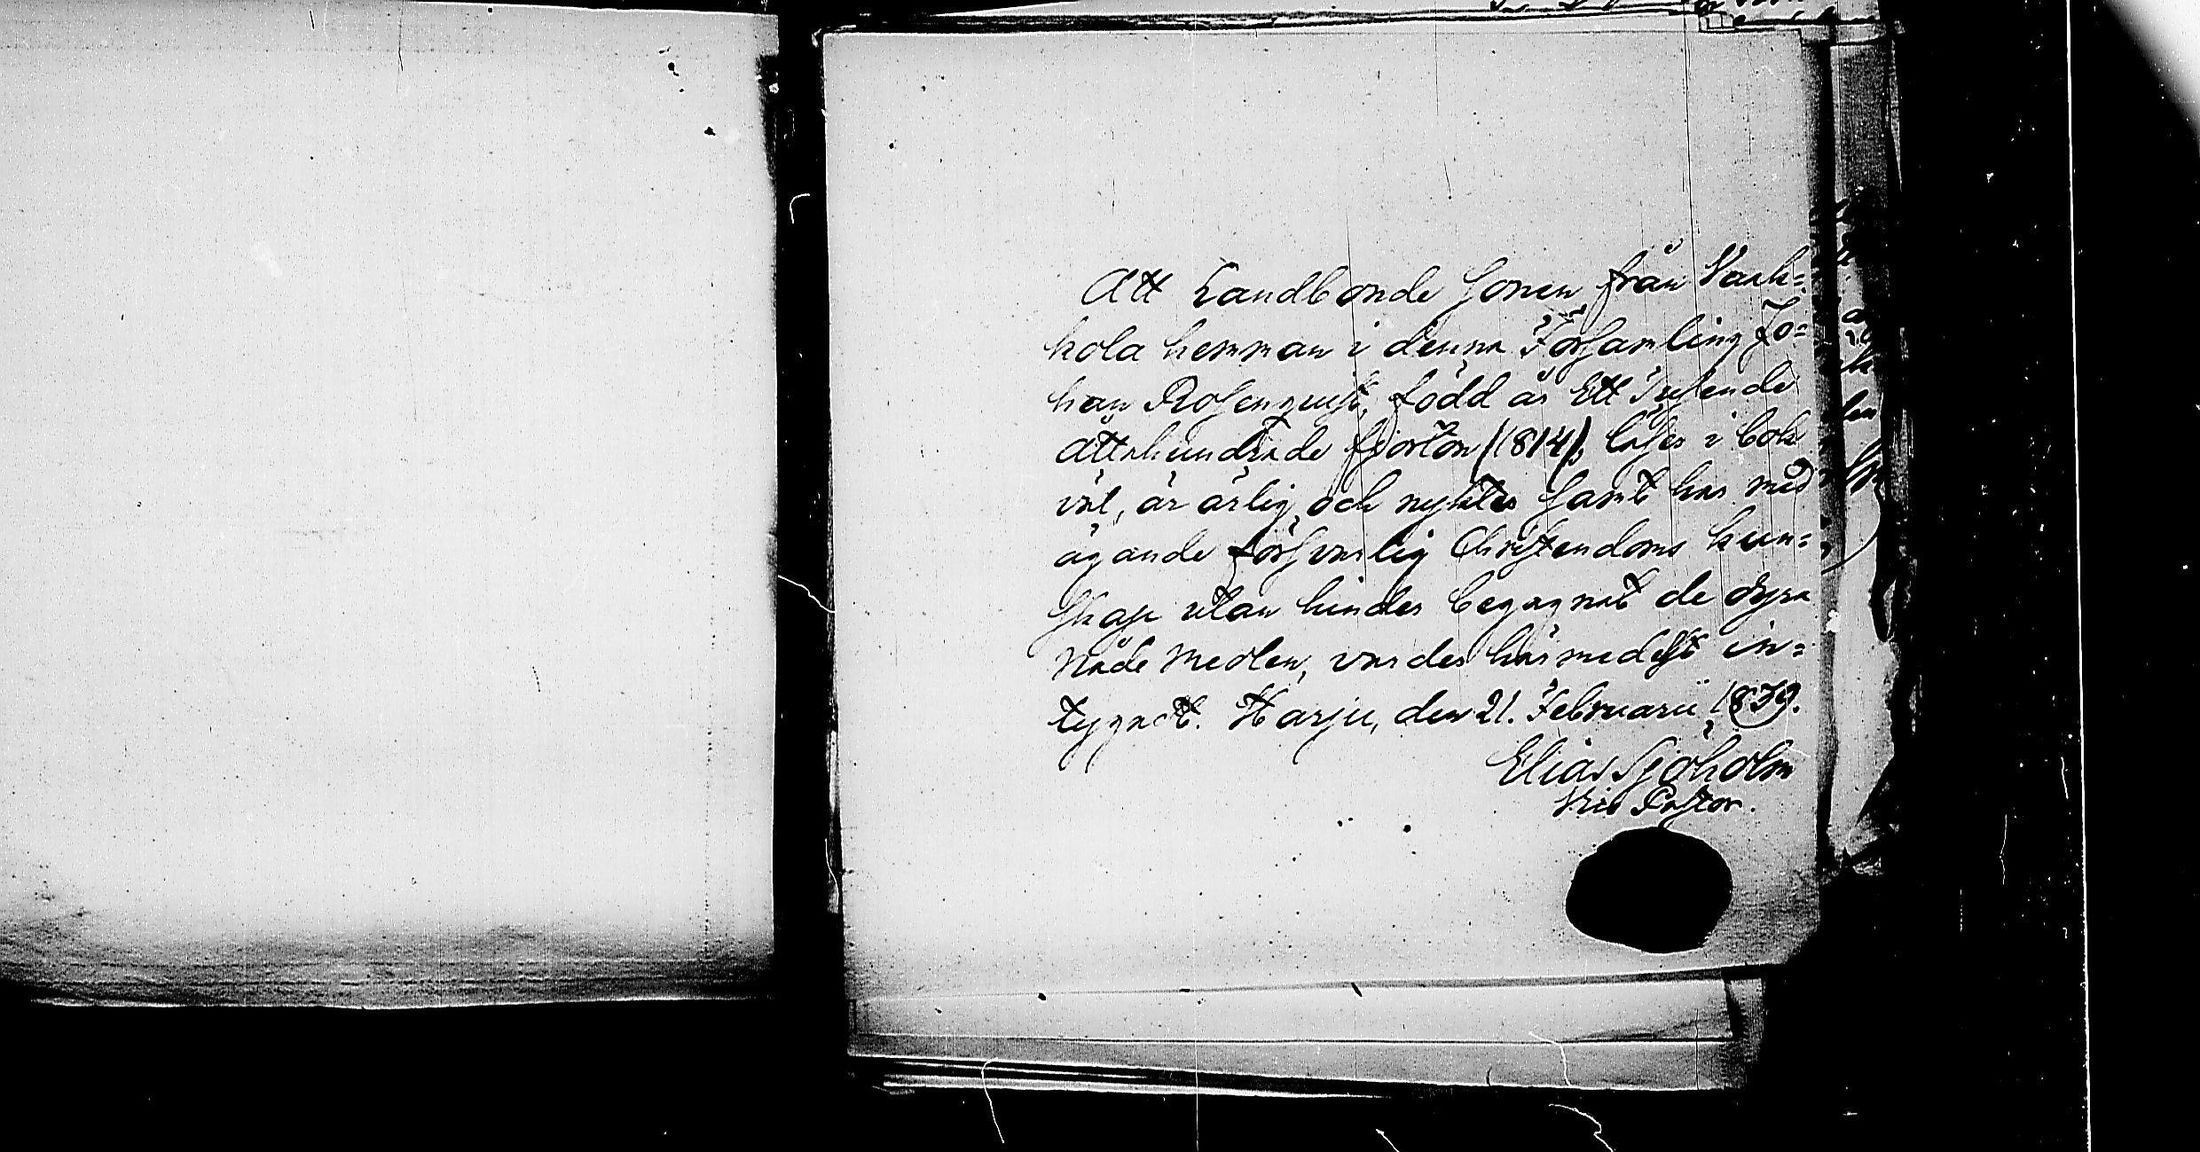 Att Landbonde Sonen från Vark=
kola hemman i denna Församling Jo=
han Rosenquist, född år Ett Tusende
Åttahundrade fjorton (1814), läser i bok
väl, är ärlig och nykter samt har med
ägande försvarlig Christendoms kun=
skap utan hinder begagnat de dyra
Nåde Medlen, varder härmedelst in=
tygadt. Harju, den 21. Februarii 1839.
Elias Sjöholm
Vice Pastor.